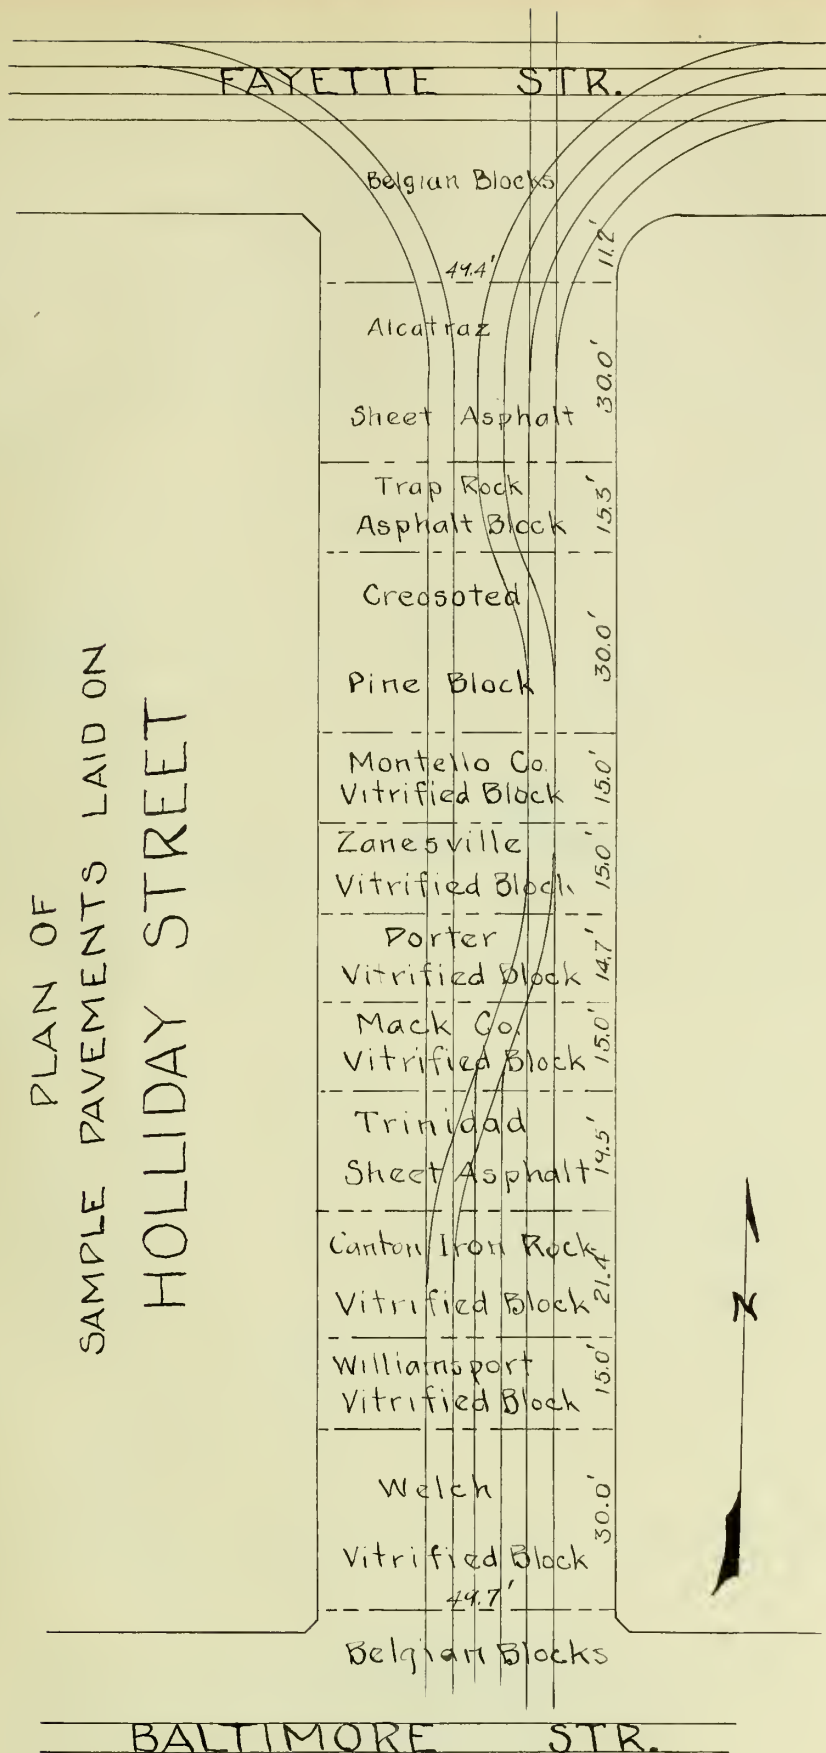 FAYETTE STR.
Belgian Blocks
11.2'
49.4'
Alcatraz
Sheet Asphalt
30.0'
Trap Rock
Asphalt Block
15.3'
Creosoted
Pine Block
30.0'
Montello Co.
Vitrified Block
15.0'
Zanesville
Vitrified Block
15.0'
Porter
Vitrified Block
14.7'
Mack Co.
Vitrified Block
15.0'
Trinidad
Sheet Asphalt
19.5'
Canton Iron Rock
Vitrified Block
21.4'
Williamsport
Vitrified Block
15.0'
Welch
Vitrified Block
30.0'
49.7'
Belgian Blocks
BALTIMORE STR.
PLAN OF
SAMPLE PAVEMENTS LAID ON
HOLLIDAY STREET
N